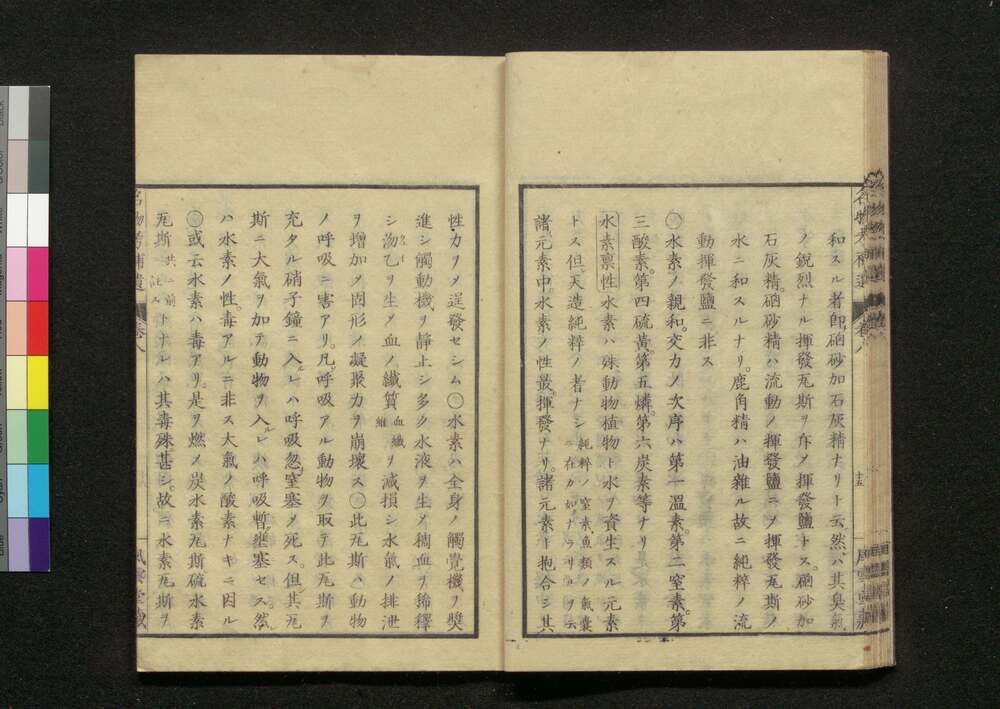 和スル者即硇砂加石灰精ナリト云然ハ其臭氣
ノ鋭烈ナル揮發瓦斯ヲ斥メ揮發鹽トス。硇砂加
石灰精。硇砂精ハ流動ノ揮發鹽ニメ揮發瓦斯ノ
水ニ和スルナリ。鹿角精ハ油雜ル故ニ純粹ノ流
動揮發鹽ニ非ス
〇水素ノ親和。交力ノ次序ハ第一溫素。第二窒素。第
三酸素。第四硫黄。第五燐。第六炭素等ナリ
水素稟性 水素ハ殊動物植物ト水ヲ資生スル元素
トス但天造純粹ノ者ナシ 純粹ノ窒素魚類ノ氣囊ニ在カ如ナラサルヲ云
諸元素中水素ノ性最揮發ナリ。諸元素ト抱合シ其
性力ヲメ逞發セシム〇水素ハ全身ノ觸覺機ヲ奬
進シ觸動機ヲ靜止シ多ク水液ヲ生メ稠血ヲ稀釋
シ沕乙ヲ生メ血ノ纎質 血纎維 ヲ減損シ水氣ノ排泄
ヲ增加メ固形ノ凝聚力ヲ崩壞ス〇此瓦斯ハ動物
ノ呼吸ニ害アリ。凡呼吸アル動物ヲ取テ此瓦斯ヲ
充タル硝子鐘ニ入レハ呼吸忽窒塞メ死ス。但其瓦
斯ニ大氣ヲ加テ動物ヲ入レハ呼吸暫壅塞セス。然
ハ水素ノ性毒アルニ非ス大氣ノ酸素ナキニ因ル
〇或云水素ハ毒アリ。是ヲ燃メ炭水素瓦斯硫水素
瓦斯 共ニ前ニ註ス トナレハ其毒殊甚シ。故ニ水素瓦斯ヲ
名物考補遺 卷八
十五